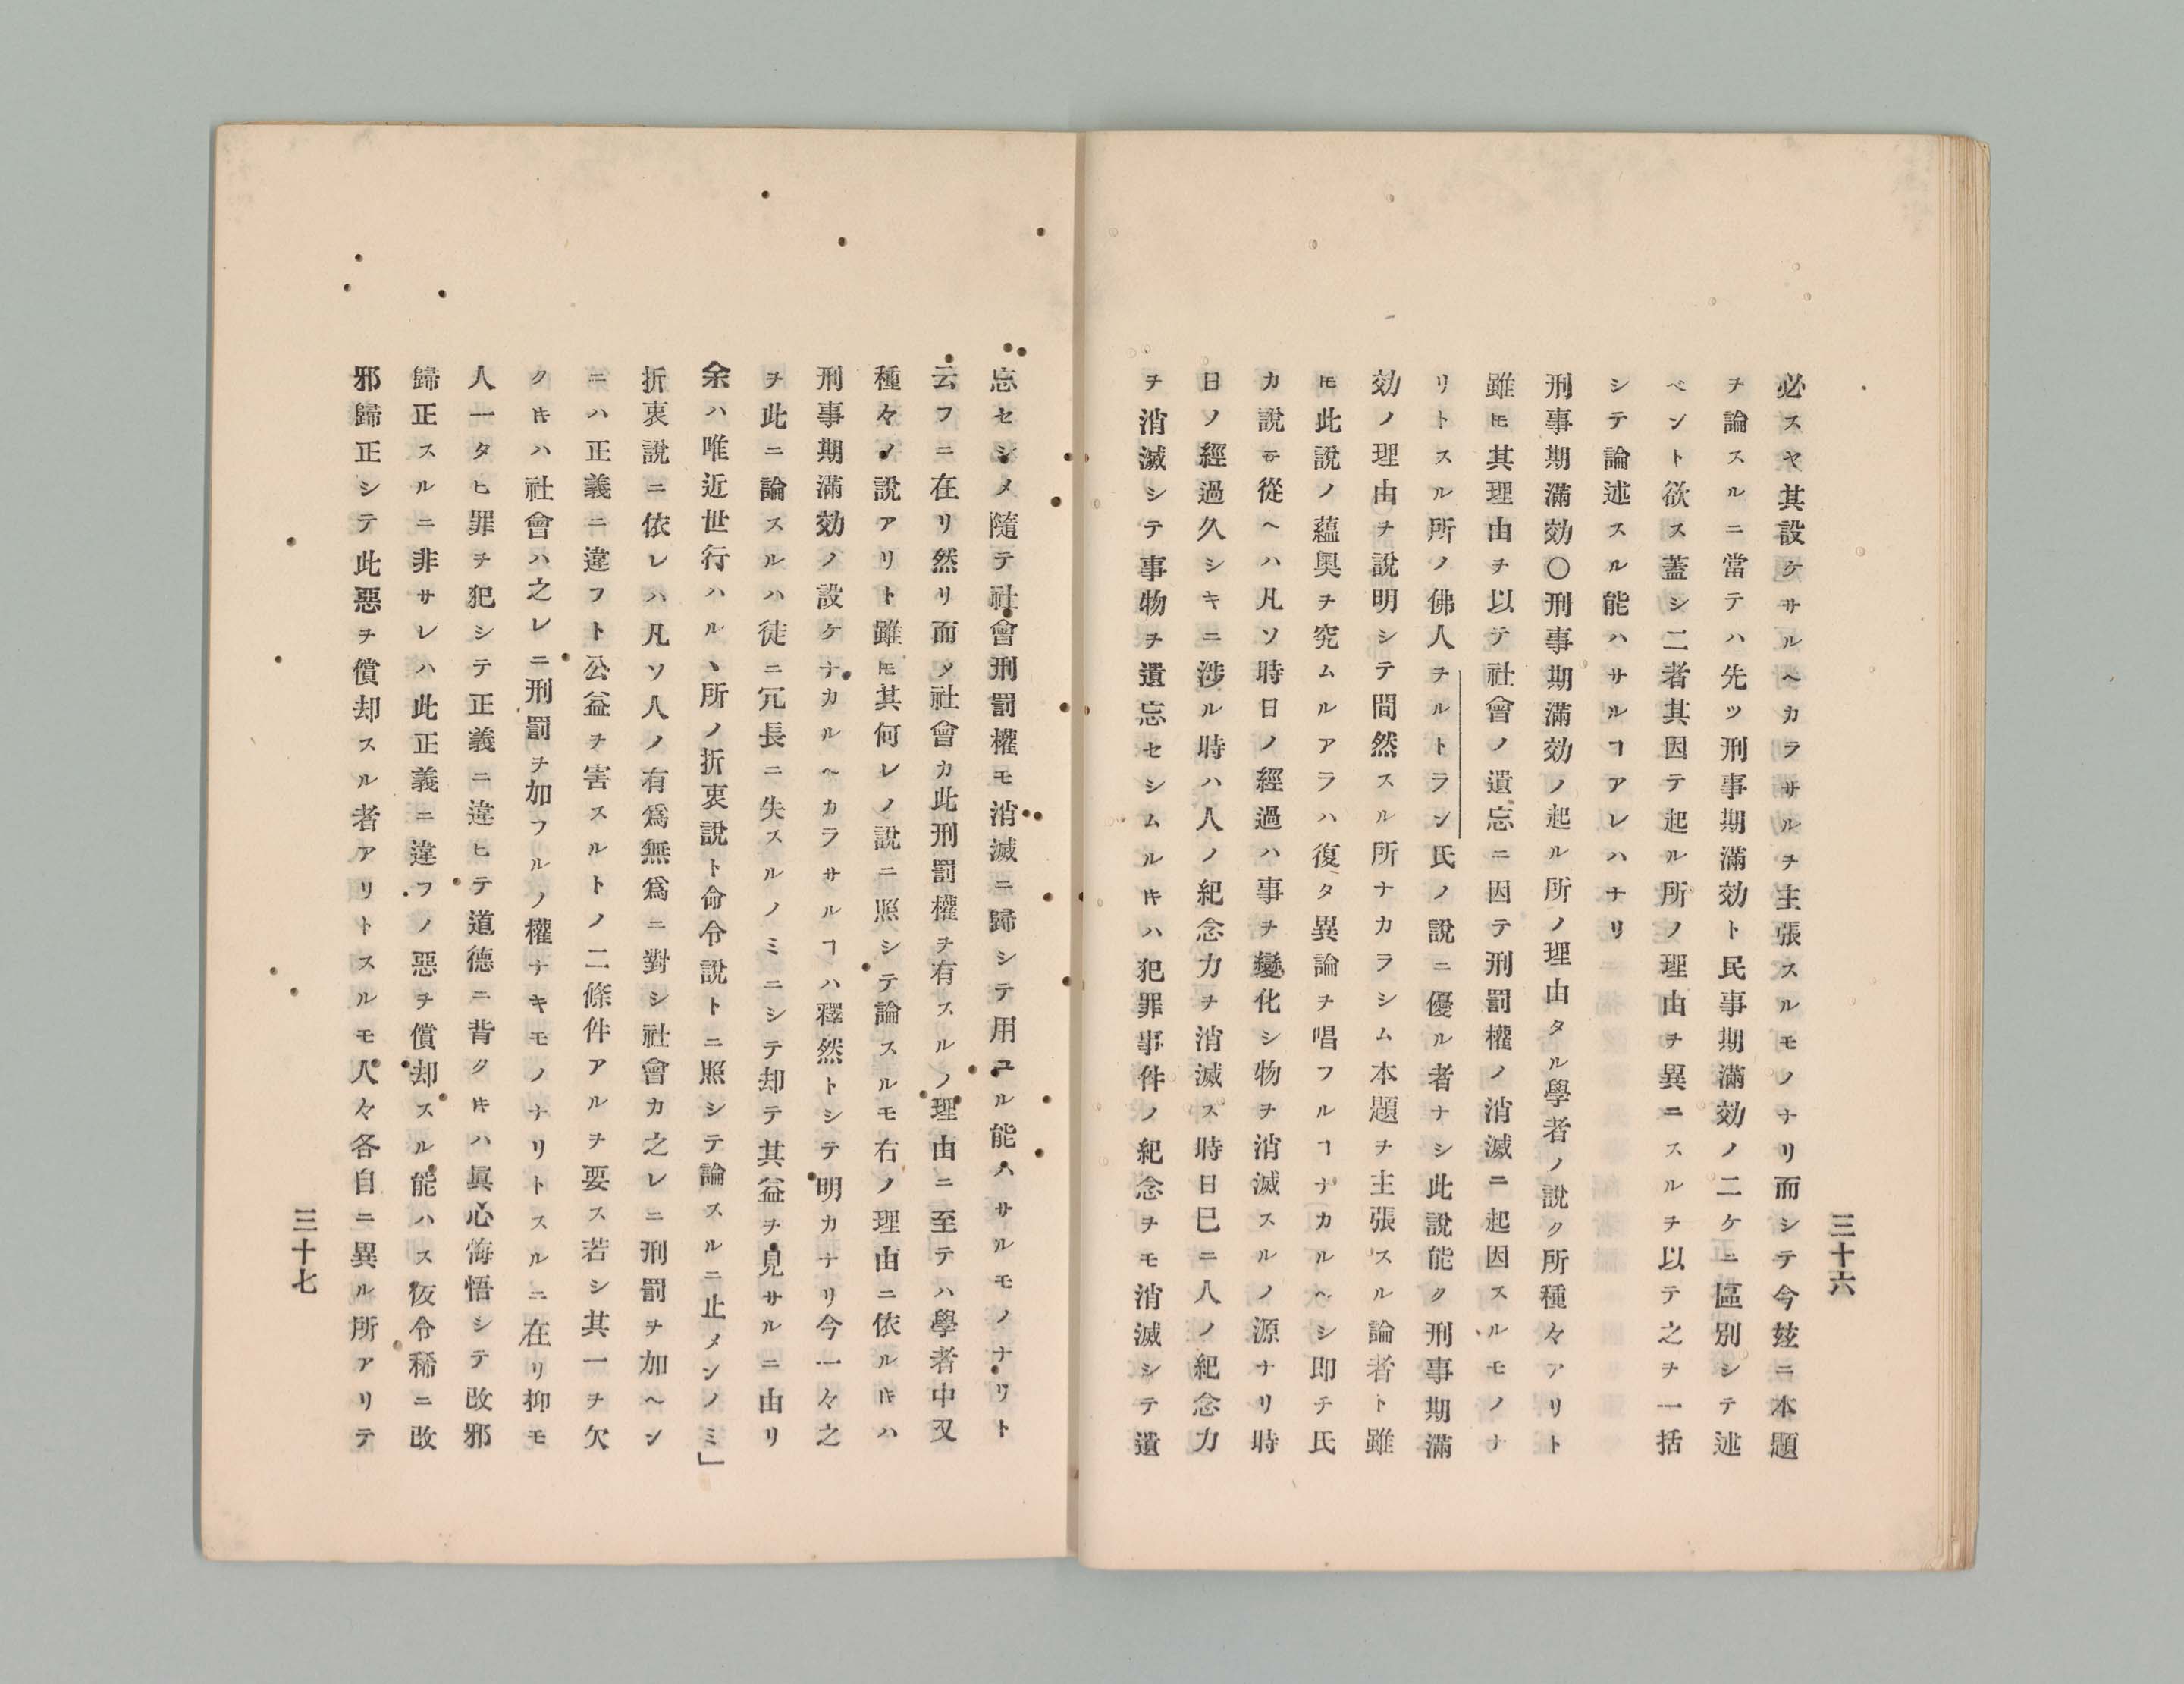 三十六
必スヤ其設ケサルヘカラサルヲ主張スルモノナリ而シテ今玆ニ本題
ヲ論スルニ當テハ先ツ刑事期滿効ト民事期滿効ノ二ケニ區別シテ述
ベント欲ス蓋シ二者其因テ起ル所ノ理由ヲ異ニスルヲ以テ之ヲ一括
シテ論述スル能ハサルヿアレハナリ
刑事期滿効〇刑事期滿効ノ起ル所ノ理由タル學者ノ說ク所種々アリト
雖𪜈其理由ヲ以テ社會ノ遺忘ニ因テ刑罰權ノ消滅ニ起因スルモノナ
リトスル所ノ佛人ヲルトラン氏ノ說ニ優ル者ナシ此說能ク刑事期滿
効ノ理由ヲ說明シテ間然スル所ナカラシム本題ヲ主張スル論者ト雖
𪜈此說ノ蘊奧ヲ究ムルアラハ復タ異論ヲ唱フルヿナカルヘシ即チ氏
カ說ニ從ヘハ凡ソ時日ノ經過ハ事ヲ變化シ物ヲ消滅スルノ源ナリ時
日ノ經過久シキニ涉ル時ハ人ノ紀念力ヲ消滅ス時日巳ニ人ノ紀念力
ヲ消滅シテ事物ヲ遺忘セシムルキハ犯罪事件ノ紀念ヲモ消滅シテ遺
忘セシメ隨テ社會刑罰權モ消滅ニ歸シテ用ユル能ハサルモノナリト
云フニ在リ然リ而メ社會カ此刑罰權ヲ有スルノ理由ニ至テハ學者中又
種々ノ說アリト雖𪜈其何レノ說ニ照シテ論スルモ右ノ理由ニ依ルキハ
刑事期滿効ノ設ケナカルヘカラサルヿハ釋然トシテ明カナリ今一々之
ヲ此ニ論スルハ徒ニ冗長ニ失スルノミニシテ却テ其益ヲ見サルニ由リ
余ハ唯近世行ハル、所ノ折衷說ト命令說トニ照シテ論スルニ止メンノミ」
折衷說ニ依レハ凡ソ人ノ有爲無爲ニ對シ社會カ之レニ刑罰ヲ加ヘン
ニハ正義ニ違フト公益ヲ害スルトノ二條件アルヲ要ス若シ其一ヲ欠
クキハ社會ハ之レニ刑罰ヲ加フルノ權ナキモノナリトスルニ在リ抑モ
人一タヒ罪ヲ犯シテ正義ニ違ヒテ道德ニ背クキハ眞心悔悟シテ改邪
歸正スルニ非サレハ此正義ニ違フノ惡ヲ償却スル能ハス仮令稀ニ改
邪歸正シテ此惡ヲ償却スル者アリトスルモ人々各自ニ異ル所アリテ
三十七